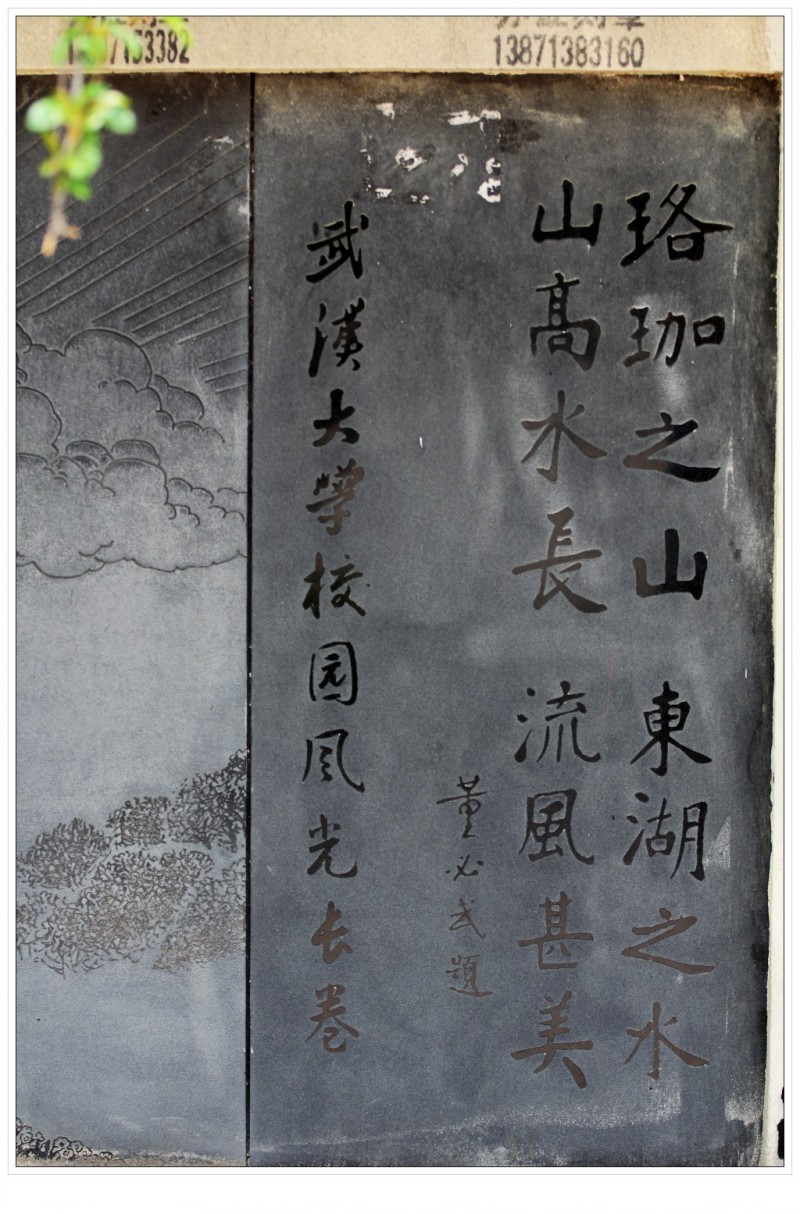 珞珈之山 東湖之水
山高水長 流風甚美
董必武題
武漢大學校园风光长卷
13871383160